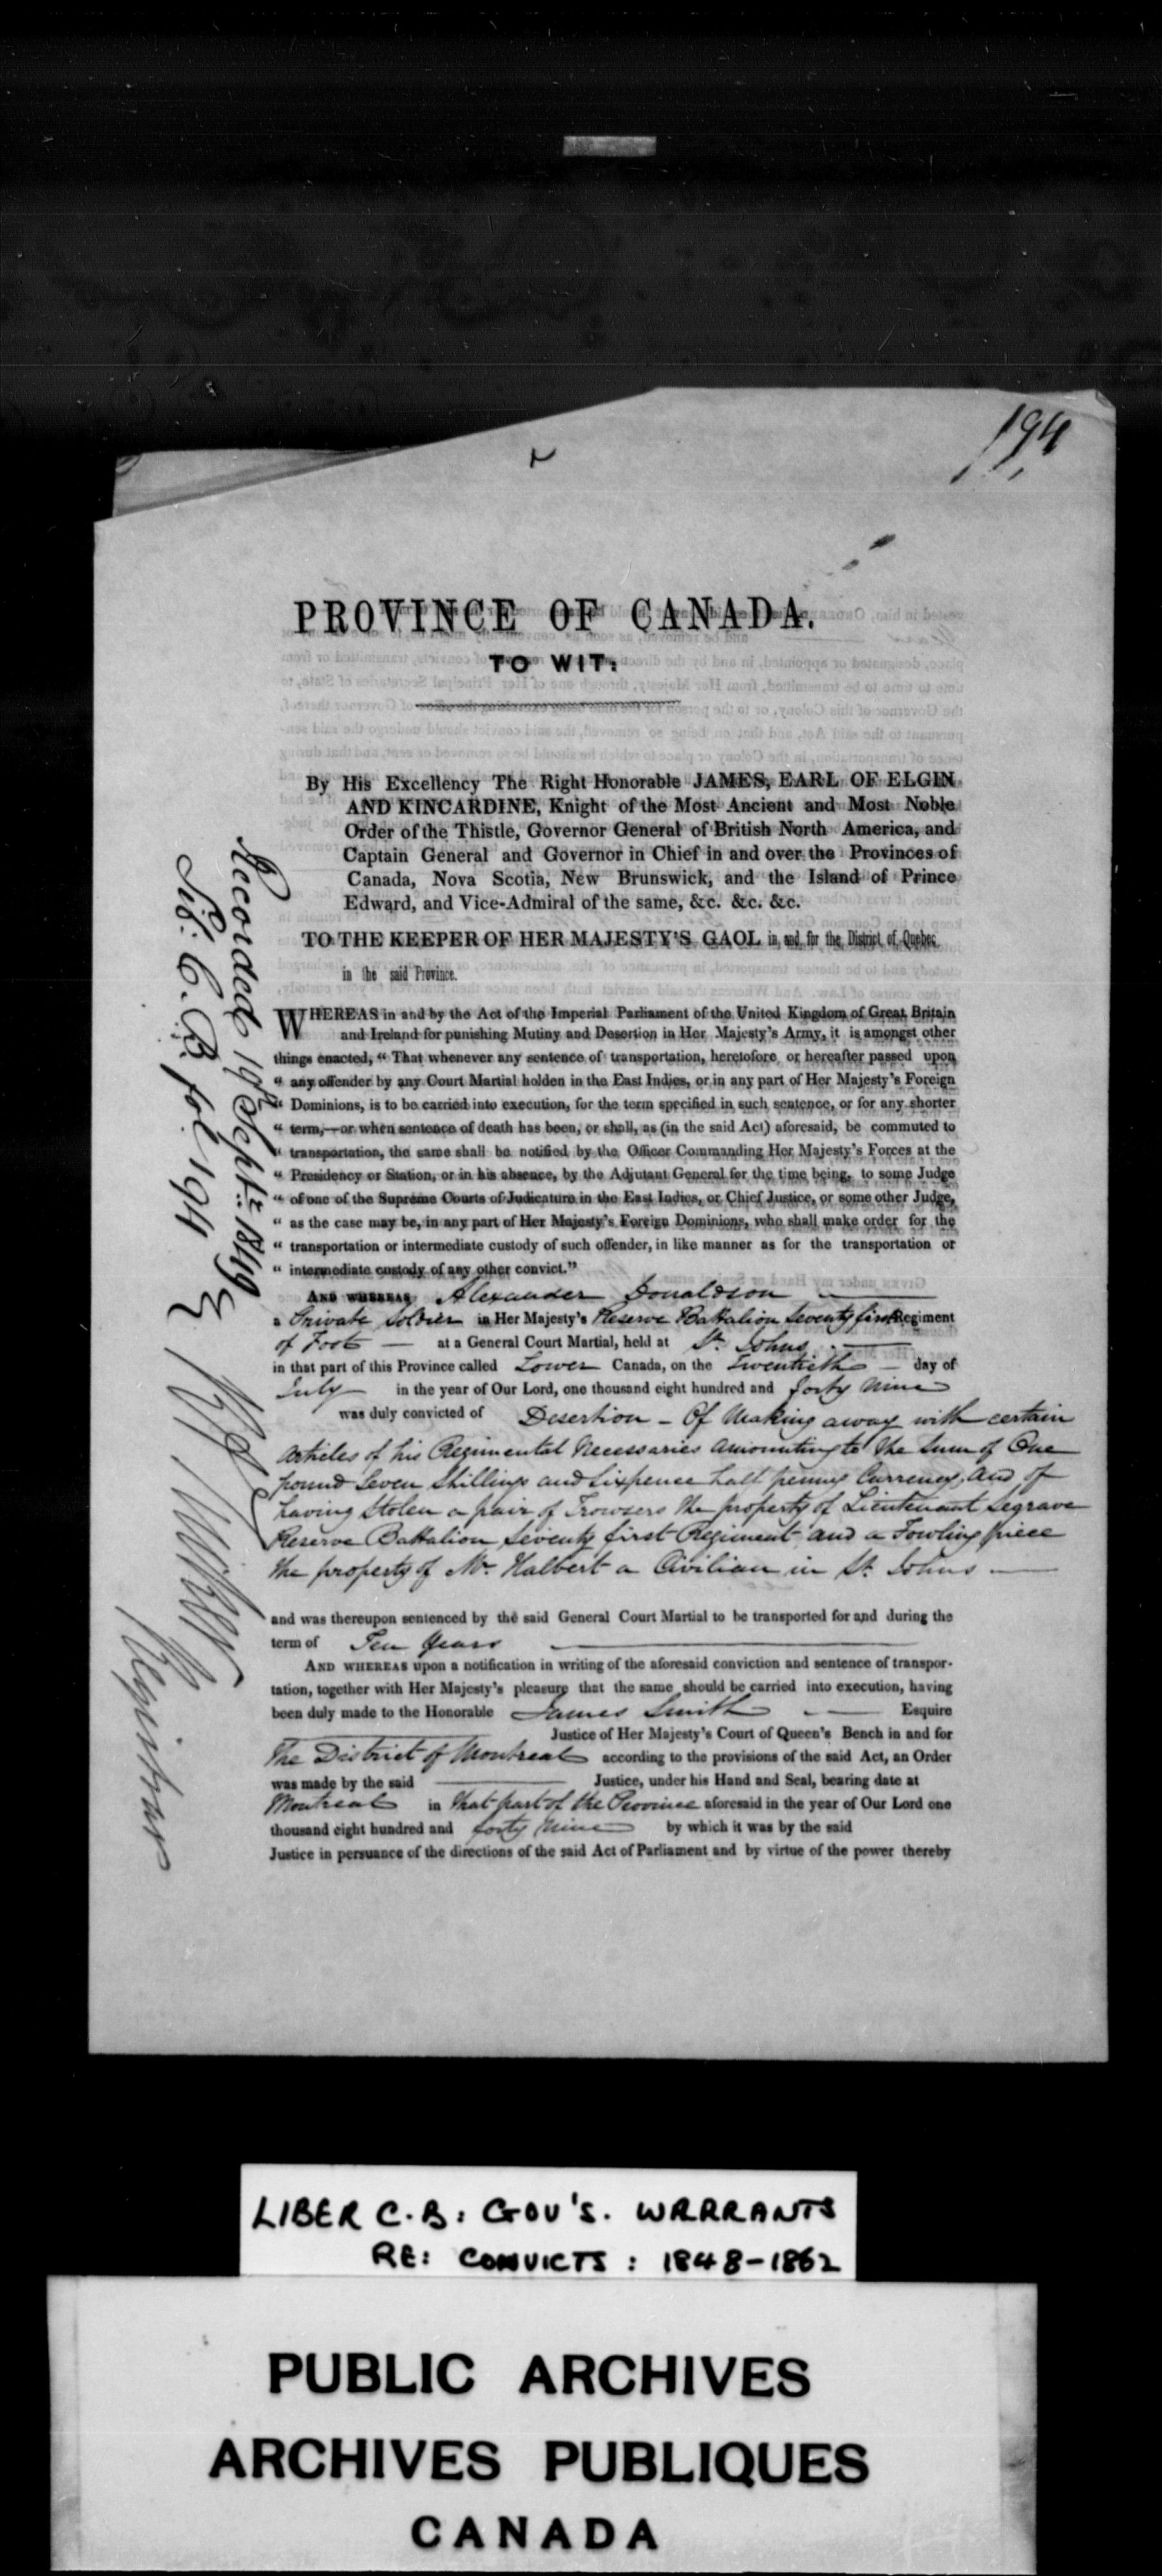 194
PROVINCE OF CANADA.
TO WIT:
By His Excellency The Right Honorable JAMES, EARL OF ELGIN
AND KINCARDINE, Knight of the Most Ancient and Most Noble
Order of the Thistle, Governor General of British North America, and
Captain General and Governor in Chief in and over the Provinces of
Canada, Nova Scotia, New Brunswick, and the Island of Prince
Edward, and Vice-Admiral of the same, &c. &c. &c.
TO THE KEEPER OF HER MAJESTY'S GAOL in and for the District of Quebec
in the said Province.
WHEREAS in and by the Act of the Imperial Parliament of the United Kingdom of Great Britain
and Ireland for punishing Mutiny and Desertion in Her Majesty's Army, it is amongst other
things enacted, “ That whenever any sentence of transportation, heretofore or hereafter passed upon
“ any offender by any Court Martial holden in the East Indies, or in any part of Her Majesty's Foreign
“ Dominions, is to be carried into execution, for the term specified in such sentence, or for any shorter
“ term,—or when sentence of death has been, or shall, as (in the said Act) aforesaid, be commuted to
“ transportation, the same shall be notified by the Officer Commanding Her Majesty's Forces at the
“ Presidency or Station, or in his absence, by the Adjutant General for the time being, to some Judge
“ of one of the Supreme Courts of Judicature in the East Indies, or Chief Justice, or some other Judge,
“ as the case may be, in any part of Her Majesty's Foreign Dominions, who shall make order for the
“ transportation or intermediate custody of such offender, in like manner as for the transportation or
“ intermediate custody of any other convict.”
AND WHEREAS Alexander Donaldson
a Private Soldier in Her Majesty's Reserve Battalion Seventy first Regiment
of Foot — at a General Court Martial, held at St. Johns
in that part of this Province called Lower Canada, on the Twentieth — day of
July in the year of Our Lord, one thousand eight hundred and forty Nine
was duly convicted of Desertion - Of Making away with certain
articles of his Regimental Necessaries amounting to the Sum of One
pound Seven Shillings and Sixpence half penny Currency, and of
having Stolen a pair of Trowsers the property of Lieutenant Segrave
Reserve Battalion Seventy first Regiment and a Fowling piece
the property of Mr. Halbert a Civilian in St. Johns
and was thereupon sentenced by the said General Court Martial to be transported for and during the
term of Ten Years
AND WHEREAS upon a notification in writing of the aforesaid conviction and sentence of transpor-
tation, together with Her Majesty's pleasure that the same should be carried into execution, having
been duly made to the Honorable James Smith Esquire
Justice of Her Majesty's Court of Queen's Bench in and for
The District of Montreal according to the provisions of the said Act, an Order
was made by the said Justice, under his Hand and Seal, bearing date at
Montreal in that part of the Province aforesaid in the year of Our Lord one
thousand eight hundred and forty Nine by which it was by the said
Justice in persuance of the directions of the said Act of Parliament and by virtue of the power thereby
Recorded 19th Septr. 1849
Lib: C.B. fol 194
Registrar
LIBER C.B: GOV'S. WARRANTS
RE: CONVICTS : 1848-1862
PUBLIC ARCHIVES
ARCHIVES PUBLIQUES
CANADA